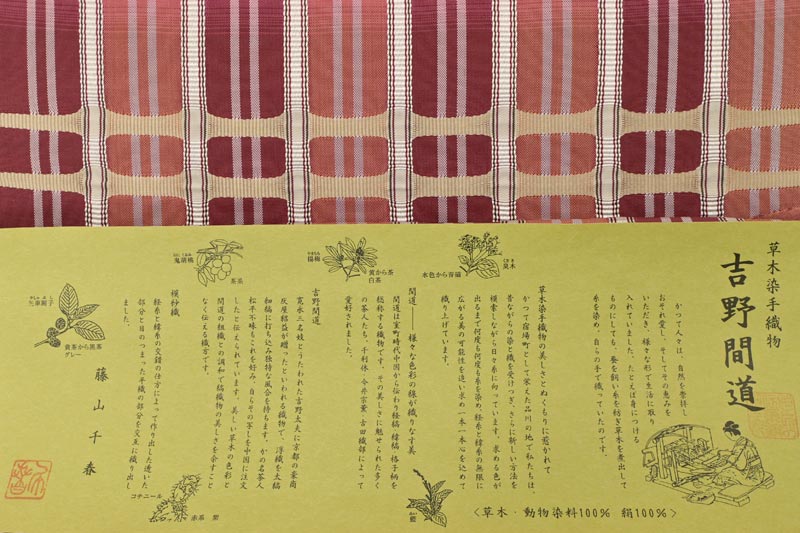 草木染手織物
吉野間道
かつて人々は、自然を崇拝し
おそれ愛し、そしてその恵みを
いただき、様々な形で生活に取り
入れていました。たとえば身につける
ものにしても、蚕を飼い糸を紡ぎ草木を煮出して
糸を染め、自らの手で織っていたのです。
草木染手織物の美しさとぬくもりに惹かれて
かつて宿場町として栄えた品川の地で私たちは、
昔ながらの染と織を受けつぎ、さらに新しい方法を
模索しながら日々糸に向っています。求める色が
出るまで何度も何度も糸を染め、経糸と緯糸の無限に
広がる美の可能性を追い求め一本一本心を込めて
織り上げています。
間道――様々な色彩の線が織りなす美
間道は室町時代中国から伝わり経縞、緯縞、格子柄を
総称する織物です。その美しさに魅せられた多く
の茶人たち、千利休、今井宗薫、吉田織部によって
愛好されました。
吉野間道
寛永三名妓とうたわれた吉野太夫に京都の豪商
灰屋紹益が贈ったといわれる織物で、浮織を太縞
細縞に打ち込み独特な風合を持ちます。かの名茶人
松平不昧もこれを好み、自らその写しを中国に注文
したと伝えられています。美しい草木の色彩と
間道の組織との調和で縞織物の美しさを余すこと
なく伝える織方です。
模紗織
経糸と緯糸の交錯の仕方によって作り出した透いた
部分と目のつまった平織の部分を交互に織り出し
ました。
藤山千春
臭木
水色から青磁
楊梅
黄から茶
白茶
鬼胡桃
茶系
矢車附子
黄茶から黒茶
グレー
コチニール
赤系 紫
藍
<草木・動物染料100% 絹100%>